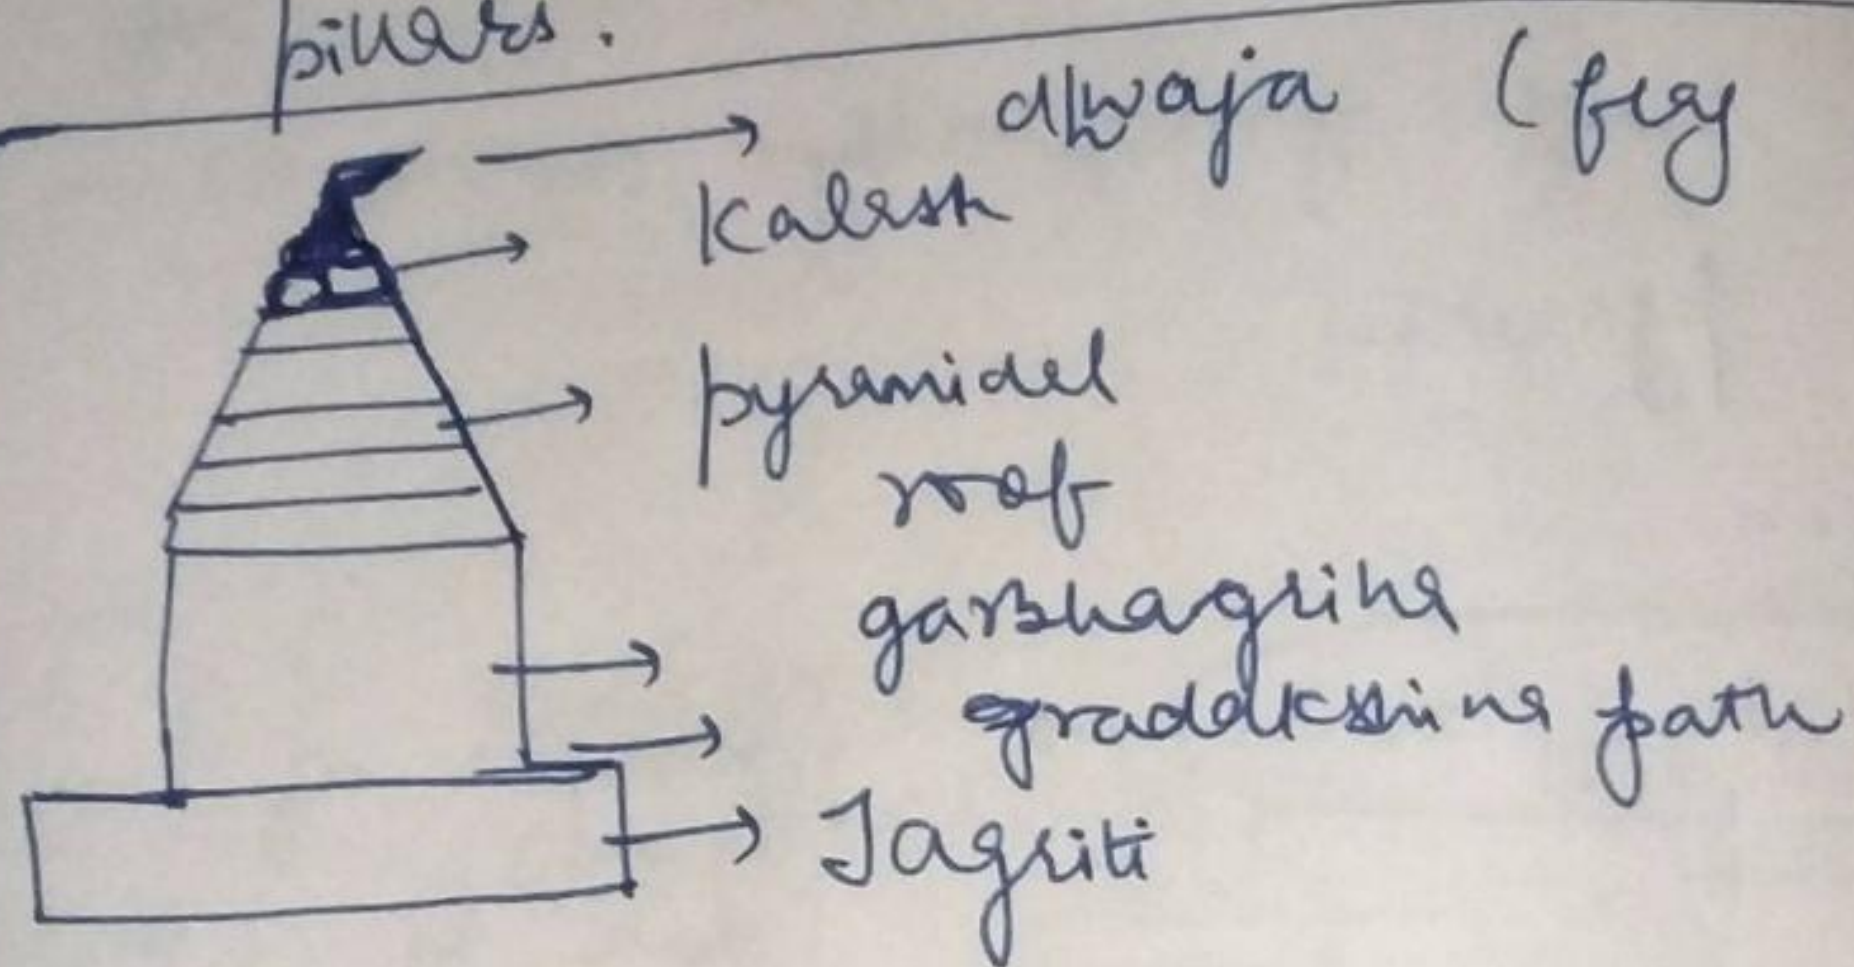 pillars.
dhwaja (flag
Kalash
pyramidal
roof
garbhagriha
pradakshina path
Jagriti